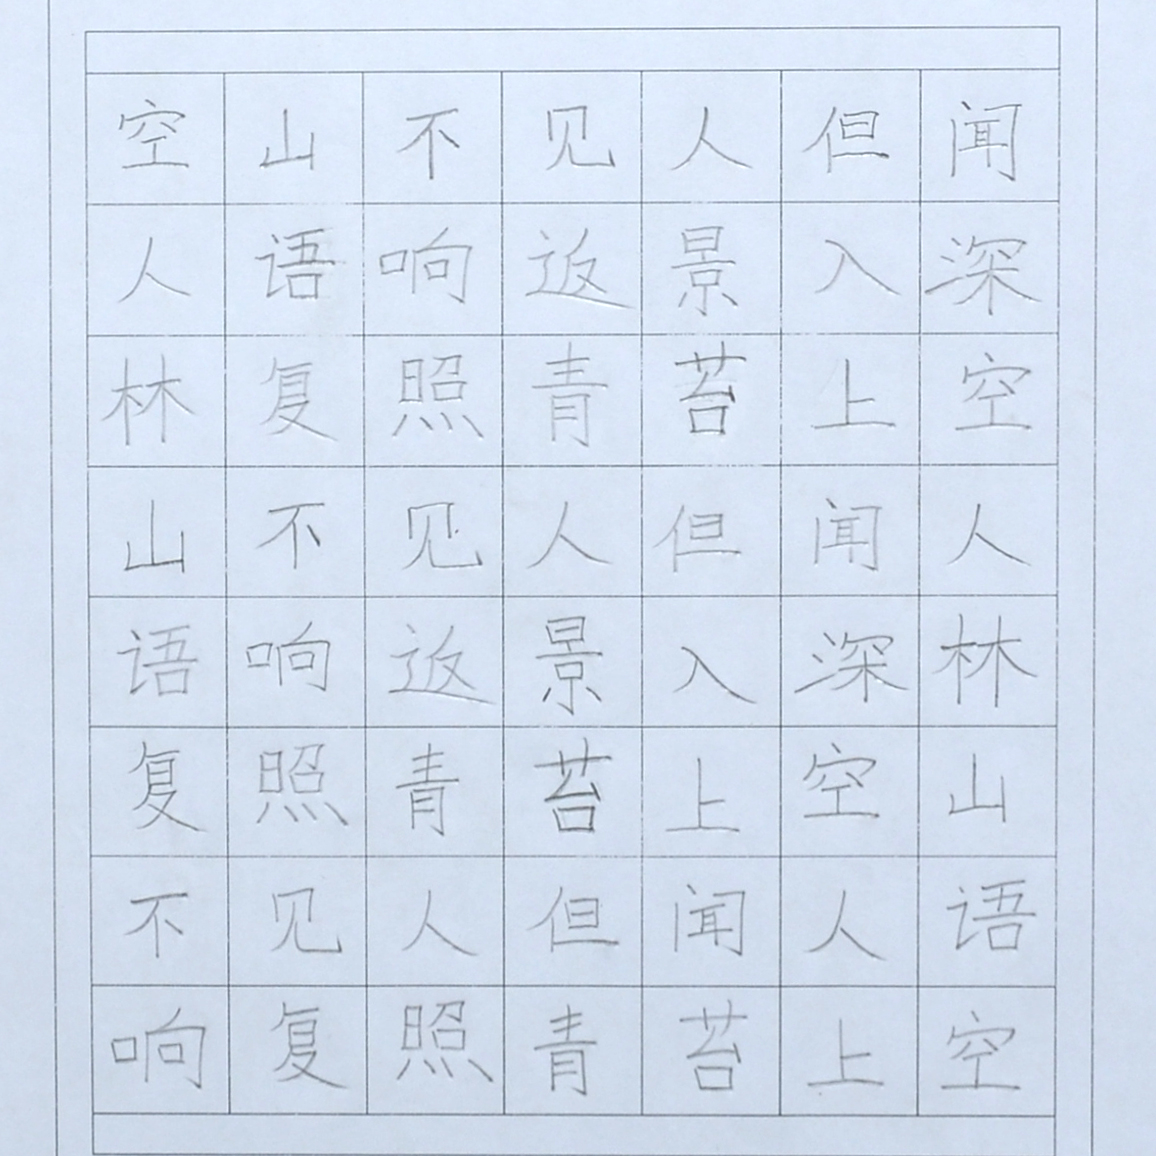 空山不见人但闻
人语响返景入深
林复照青苔上空
山不见人但闻人
语响返景入深林
复照青苔上空山
不见人但闻人语
响复照青苔上空